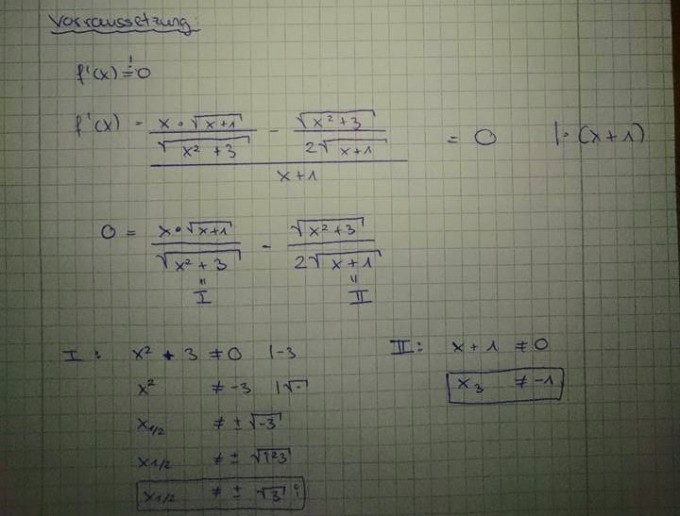 Vorraussetzung:
f'(x) =! 0
f'(x) = ((x • √(x+1))/√(x² + 3) - √(x² + 3)/(2√(x+1)))/(x+1) = 0 |• (x+1)
0 = (x • √(x+1))/√(x² + 3) - √(x² + 3)/(2√(x+1))
= I = II
I: x² + 3 ≠ 0 |-3
II: x + 1 ≠ 0
x² ≠ -3 |√
x₃ ≠ -1
x₁/₂ ≠ ± √-3
x₁/₂ ≠ ± √(i²3)
x₁/₂ ≠ ± √3 i